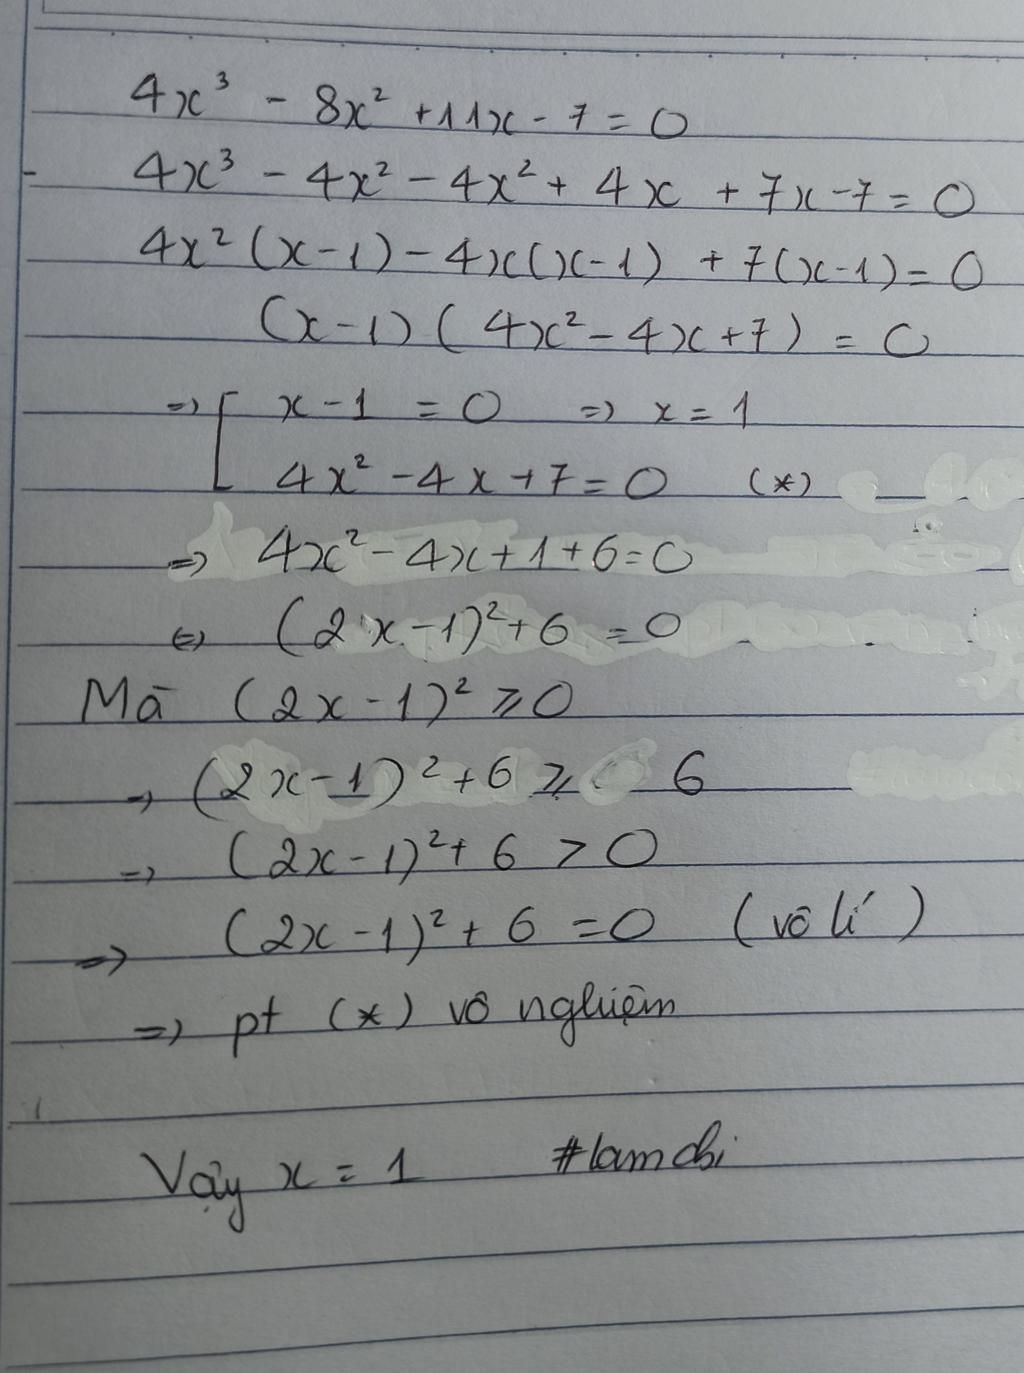 4x³ - 8x² + 11x - 7 = 0
4x³ - 4x² - 4x² + 4x + 7x - 7 = 0
4x² (x-1) - 4x(x-1) + 7(x-1) = 0
(x-1) ( 4x² - 4x + 7) = 0
=> [ x - 1 = 0 => x = 1
4x² - 4x + 7 = 0 (*)
=> 4x² - 4x + 1 + 6 = 0
<=> (2x - 1)² + 6 = 0
Mà (2x - 1)² ⩾ 0
=> (2x - 1)² + 6 ⩾ 6
=> (2x - 1)² + 6 > 0
=> (2x - 1)² + 6 = 0 (vô lí)
=> pt (*) vô nghiệm
Vậy x = 1 #lamchi